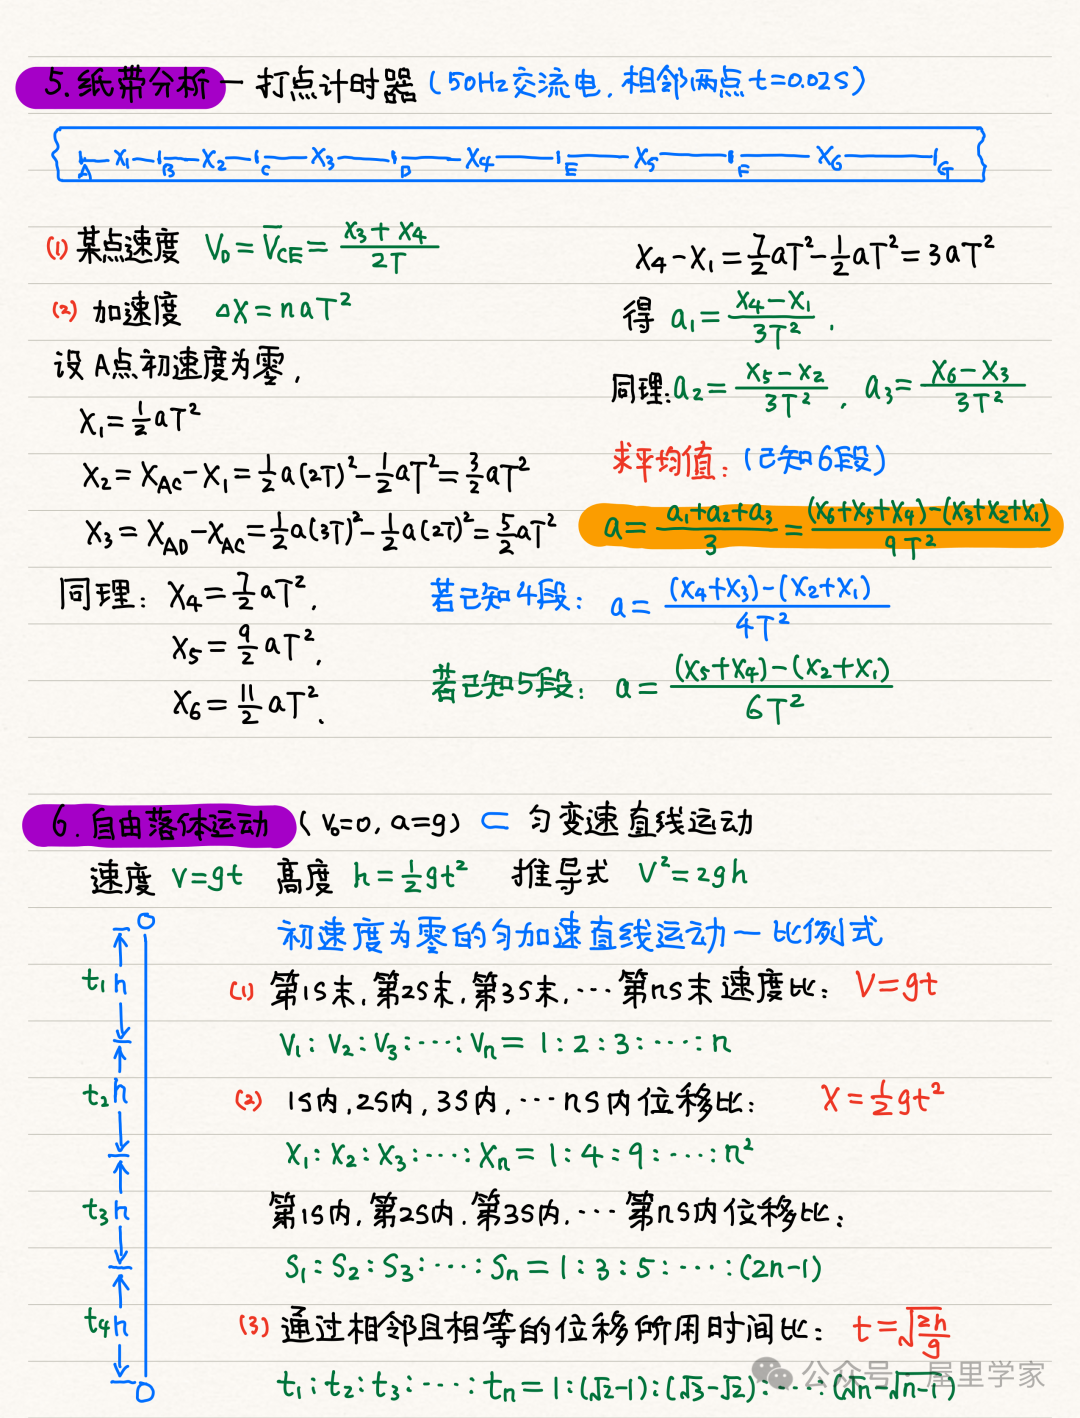 5.纸带分析—打点计时器(50Hz交流电,相邻两点t=0.02S)
A X₁ B X₂ C X₃ D X₄ E X₅ F X₆ G
(1) 某点速度 V_D=V̅_CE=(X₃+X₄)/2T
(2) 加速度 △X=naT²
设A点初速度为零,
X₁=½aT²
X₂=X_AC-X₁=½a(2T)²-½aT²=3/2aT²
X₃=X_AD-X_AC=½a(3T)²-½a(2T)²=5/2aT²
同理: X₄=7/2aT²,
X₅=9/2aT²,
X₆=11/2aT².
X₄-X₁=7/2aT²-½aT²=3aT²
得 a₁=(X₄-X₁)/3T²,
同理:a₂=(X₅-X₂)/3T², a₃=(X₆-X₃)/3T²
求平均值:(已知6段)
a=(a₁+a₂+a₃)/3=((X₆+X₅+X₄)-(X₃+X₂+X₁))/9T²
若已知4段: a=((X₄+X₃)-(X₂+X₁))/4T²
若已知5段: a=((X₅+X₄)-(X₂+X₁))/6T²
6.自由落体运动(V₀=0,a=g)⊂匀变速直线运动
速度 V=gt 高度 h=½gt² 推导式 V²=2gh
初速度为零的匀加速直线运动—比例式
t₁ h
t₂ h
t₃ h
t₄ h
(1) 第1S末,第2S末,第3S末,…第nS末速度比: V=gt
V₁:V₂:V₃:…:Vn=1:2:3:…:n
(2) 1S内,2S内,3S内,…nS内位移比: X=½gt²
X₁:X₂:X₃:…:Xn=1:4:9:…:n²
第1S内,第2S内,第3S内,…第nS内位移比:
S₁:S₂:S₃:…:Sn=1:3:5:…:(2n-1)
(3) 通过相邻且相等的位移所用时间比: t=√(2h/g)
t₁:t₂:t₃:…:tn=1:(√2-1):(√3-√2):…:(√n-√n-1)
公众号·屋里学家